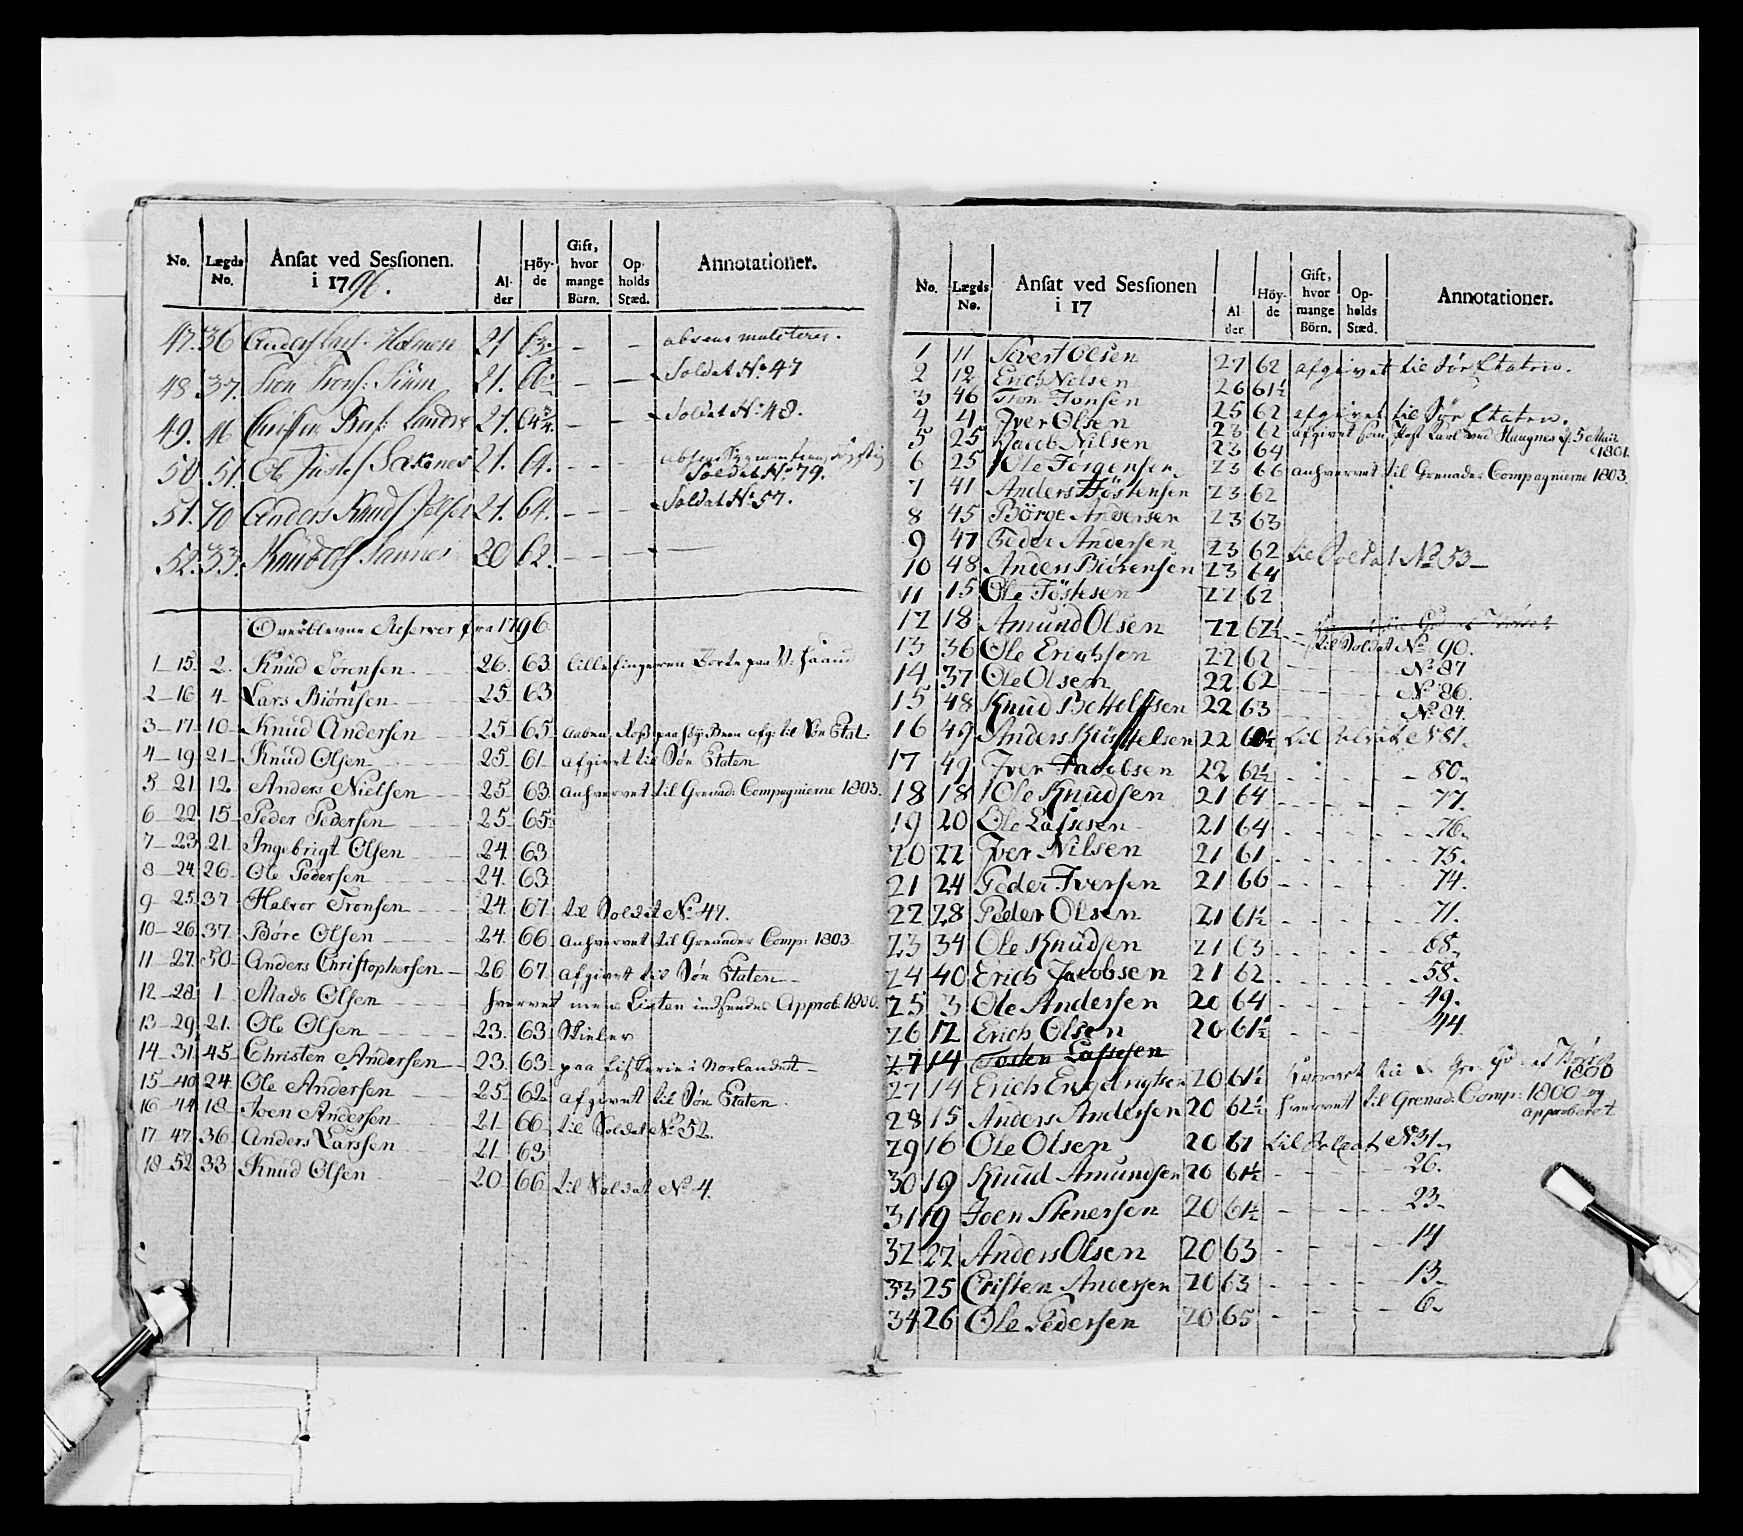 No. Lægds No. Ansat ved Sessionen. i 1796. Alder Höyde Gift, hvor mange Börn. Opholds Stæd. Annotationer.
47. 36 Holmen 21 63. - -
48. 37. Tron Trons: 21. - - Soldat No. 47
49. 46 21. 64¾. - - Soldat No. 48.
50. 51. Ole 21. 64. - - - Soldat No. 79.
51. 70 Anders Knuds 21. 64. - - - Soldat No. 57.
52. 33. Knud Ols: 20 62. - - - -
Overblevne Reserver fra 1796
1 - 15. 2. Knud Sörensen 26. 63. lille fingeren borte paa V: Haand
2 - 16 4. Lars Biörnsen 25. 63
3 - 17 10 Knud Andersen 25. 65 afg: til Söe Etat.
4 - 19 21 Knud Olsen 25. 61 afgivet til Söe Etaten
5 21 12 Anders Nielsen 25. 63 anhvervet til Grenad: Compagnierne 1803.
6 - 22 15 Peder Pedersen 25. 65
7 - 23 21 Ingebrigt Olsen 24. 63
8 - 24 26 Ole Pedersen 24. 63
9 - 25 37 Halvor Tronsen 24. 67 til Soldat No. 47.
10 - 26 37. Böre Olsen 24. 66 anhvervet til Grenader Comp: 1803
11 - 27 50 Anders Christophersen 26 67 afgivet til Söe Etaten
12 - 28 1 Mads Olsen hvervet Listen indsendes Approb. 1800.
13 - 29 21. Ole Olsen 23. 63
14 - 31 45 Christen Andersen 23. 63 paa fiskerie i Norlandet
15 - 40 24 Ole Andersen 25 62 afgivet til Söe Etaten.
16 - 44 18 Joen Andersen 21 66 til Soldat No. 52.
17 - 47 36 Anders Larssen 21 63
18 - 52 33 Knud Olsen 20 66 til Soldat No. 4.
No. Lægds No. Ansat ved Sessionen i 17 Alder Höyde Gift, hvor mange Börn. Opholds Stæd. Annotationer.
1 11 Sivert Olsen 27 62 afgivet til Söe Etaten.
2 12 Erich Nilsen 26 61½
3 46 Tron Jonsen 25 62 afgivet til Söe Etaten.
4 4 Iver Olsen 23 62 afgivet som Post Karl ved Haugnes d. 5 Maii 1801.
5 25 Jacob Nilsen 23 64
6 25 Ole Jörgensen 23 66 anhvervet til Grenader Compagnierne 1803.
7 41 Anders Höstensen 23 62
8 45 Börge Andersen 23 63
9 47 Peder Andersen 23 62 til Soldat No. 53
10 48 Anders Biörensen 23 64
11 15 Ole Föstesen 22 62
12 18 Amund Olsen 22 62½
13 36 Ole Erichsen 22 62 til Soldat No. 90.
14 37 Ole Olsen 22 62 No. 87
15 48 Knud Bottolfsen 22 63 No. 86.
No. 84.
16 49 Anders 22 til Soldat No 81.
17 49 Iver Jacobsen 22 62½ 80.
18 18 Ole Knudsen 21 64 77.
19 20 Ole Lassesen 21 64 76.
20 22 Iver Nilsen 21 61 75.
21 24 Peder Iversen 21 66 74.
22 28 Peder Olsen 21 61½ 71.
23 34 Ole Knudsen 21 63 68.
24 40 Erich Jacobsen 21 62 58.
25 3 Ole Andersen 20 64 49.
26 12 Erich Olsen 20 61½ 44
27 14 Tosten Lassesen
27 14 Erich Engebrigtsen 20 61½ hvervet 1800
28 15 Anders Andersen 20 62½ hvervet til Grenad: Comp: 1800 og approberet
29 16 Ole Olsen 20 61 til Soldat No 31.
30 19 Knud Amundsen 20 61½ 26.
31 19 Joen Stenersen 20 61½ 23.
32 22 Anders Olsen 20 63 14
33 25 Cristen Andersen 20 63 13.
34 26 Ole Pedersen 20 65 6.